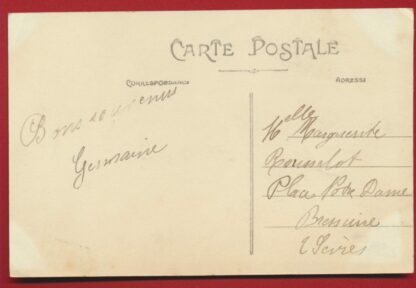 CARTE POSTALE
CORRESPONDANCE
ADRESSE
Bons souvenirs
Germaine
Melle Marguerite
Rousselot
Place Notre Dame
Bressuire
2 Sèvres